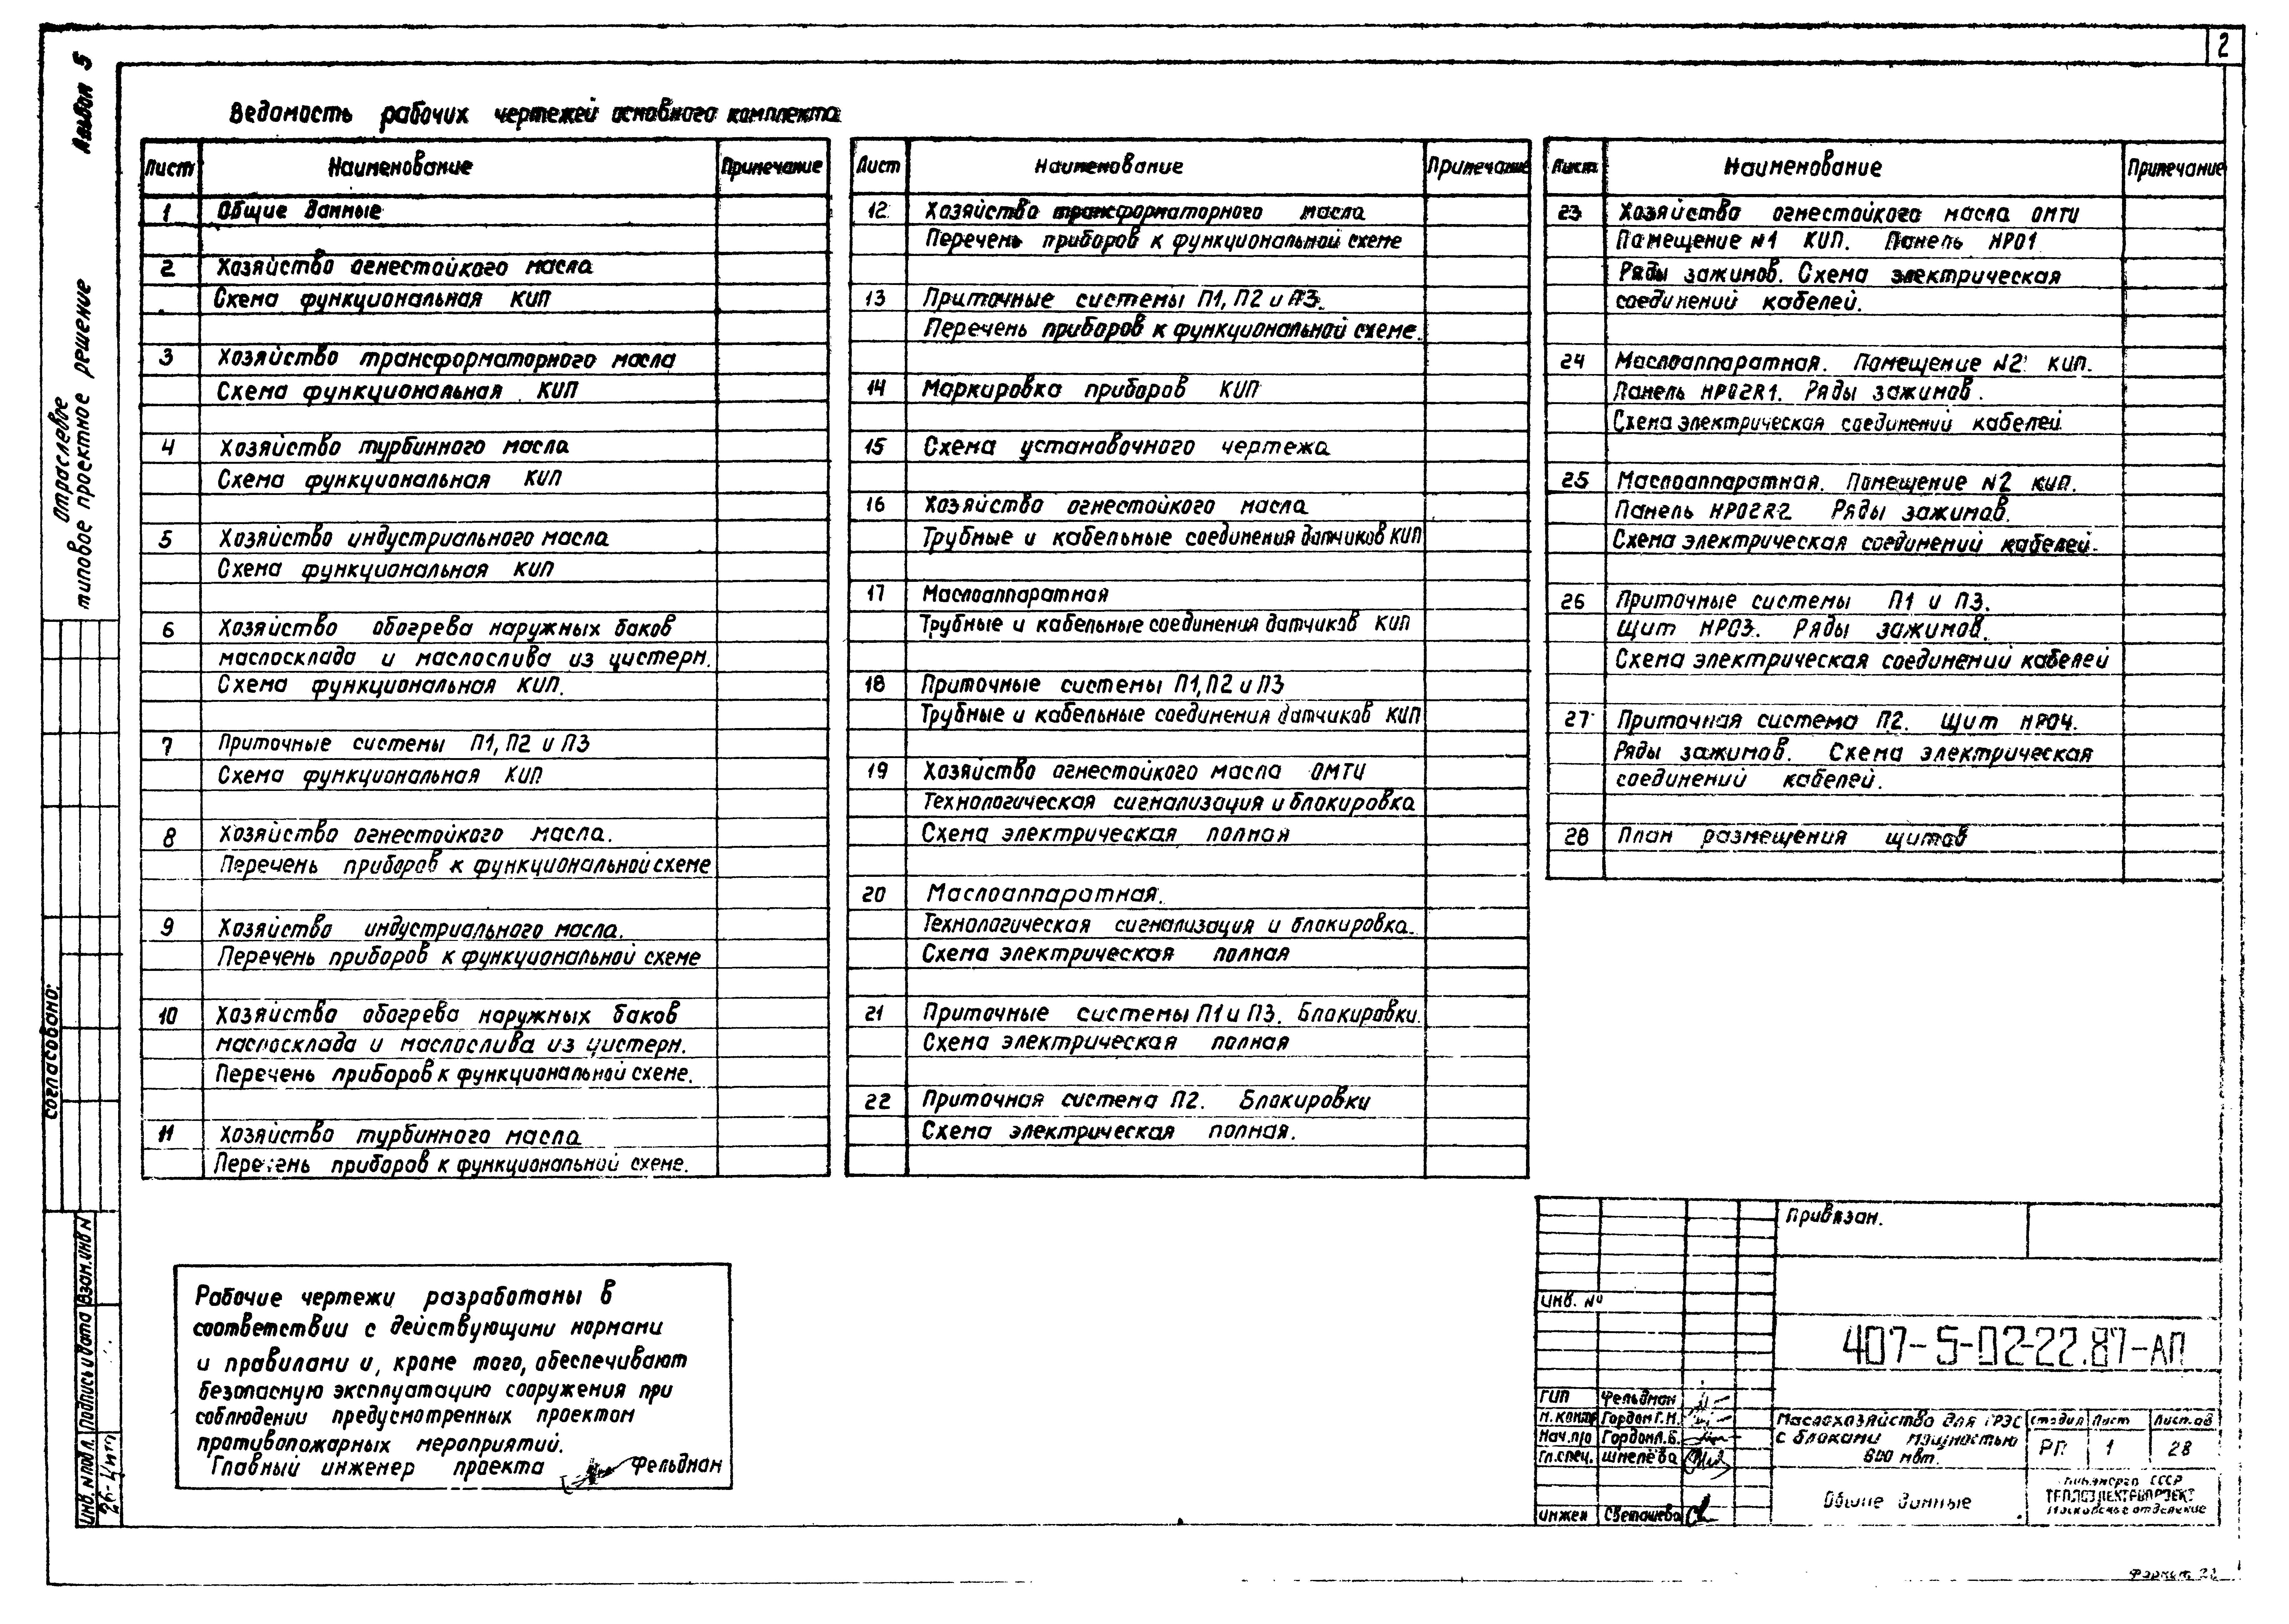 2
Альбом 5
Отраслевое
типовое проектное решение
согласовано:
Инв. N подл. Подпись и дата Взам. инв N
Ведомость рабочих чертежей основного комплекта
Лист Наименование Примечание
1 Общие данные
2 Хозяйство огнестойкого масла
Схема функциональная КИП
3 Хозяйство трансформаторного масла
Схема функциональная КИП
4 Хозяйство турбинного масла
Схема функциональная КИП
5 Хозяйство индустриального масла
Схема функциональная КИП
6 Хозяйство обогрева наружных баков
маслосклада и маслослива из цистерн.
Схема функциональная КИП.
7 Приточные системы П1, П2 и П3
Схема функциональная КИП
8 Хозяйство огнестойкого масла.
Перечень приборов к функциональной схеме
9 Хозяйство индустриального масла.
Перечень приборов к функциональной схеме
10 Хозяйство обогрева наружных баков
маслосклада и маслослива из цистерн.
Перечень приборов к функциональной схеме.
11 Хозяйство турбинного масла
Перечень приборов к функциональной схеме.
Лист Наименование Примечание
12 Хозяйство трансформаторного масла
Перечень приборов к функциональной схеме
13 Приточные системы П1, П2 и П3.
Перечень приборов к функциональной схеме.
14 Маркировка приборов КИП
15 Схема установочного чертежа
16 Хозяйство огнестойкого масла
Трубные и кабельные соединения датчиков КИП
17 Маслоаппаратная
Трубные и кабельные соединения датчиков КИП
18 Приточные системы П1, П2 и П3
Трубные и кабельные соединения датчиков КИП
19 Хозяйство огнестойкого масла ОМТИ
Технологическая сигнализация и блокировка
Схема электрическая полная
20 Маслоаппаратная.
Технологическая сигнализация и блокировка.
Схема электрическая полная
21 Приточные системы П1 и П3. Блокировки.
Схема электрическая полная
22 Приточная система П2. Блокировки
Схема электрическая полная.
Лист Наименование Примечание
23 Хозяйство огнестойкого масла ОМТИ
Помещение N1 КИП. Панель HP01
Ряды зажимов. Схема электрическая
соединений кабелей.
24 Маслоаппаратная. Помещение N2 КИП.
Панель HP02R1. Ряды зажимов.
Схема электрическая соединений кабелей
25 Маслоаппаратная. Помещение N2 КИП.
Панель HP02R2 Ряды зажимов.
Схема электрическая соединений кабелей.
26 Приточные системы П1 и П3.
Щит HP03. Ряды зажимов.
Схема электрическая соединений кабелей
27 Приточная система П2. Щит HP04.
Ряды зажимов. Схема электрическая
соединений кабелей.
28 План размещения щитов
Рабочие чертежи разработаны в
соответствии с действующими нормами
и правилами и, кроме того, обеспечивают
безопасную эксплуатацию сооружения при
соблюдении предусмотренных проектом
противопожарных мероприятий.
Главный инженер проекта Фельдман
Привязан.
Инв. №
407-5-02-22.87-АП
ГИП Фельдман
Н. контр Гордон Г.Н.
Нач. п/о Гордон Л.Б.
Гл. спец. Шмелёва
Инжен Светашева
Маслохозяйство для ГРЭС
с блоками мощностью
800 мвт.
Стадия Лист Листов
РП 1 28
Общие данные
Минэнерго СССР
ТЕПЛОЭЛЕКТРОПРОЕКТ
Московское отделение
Формат 22